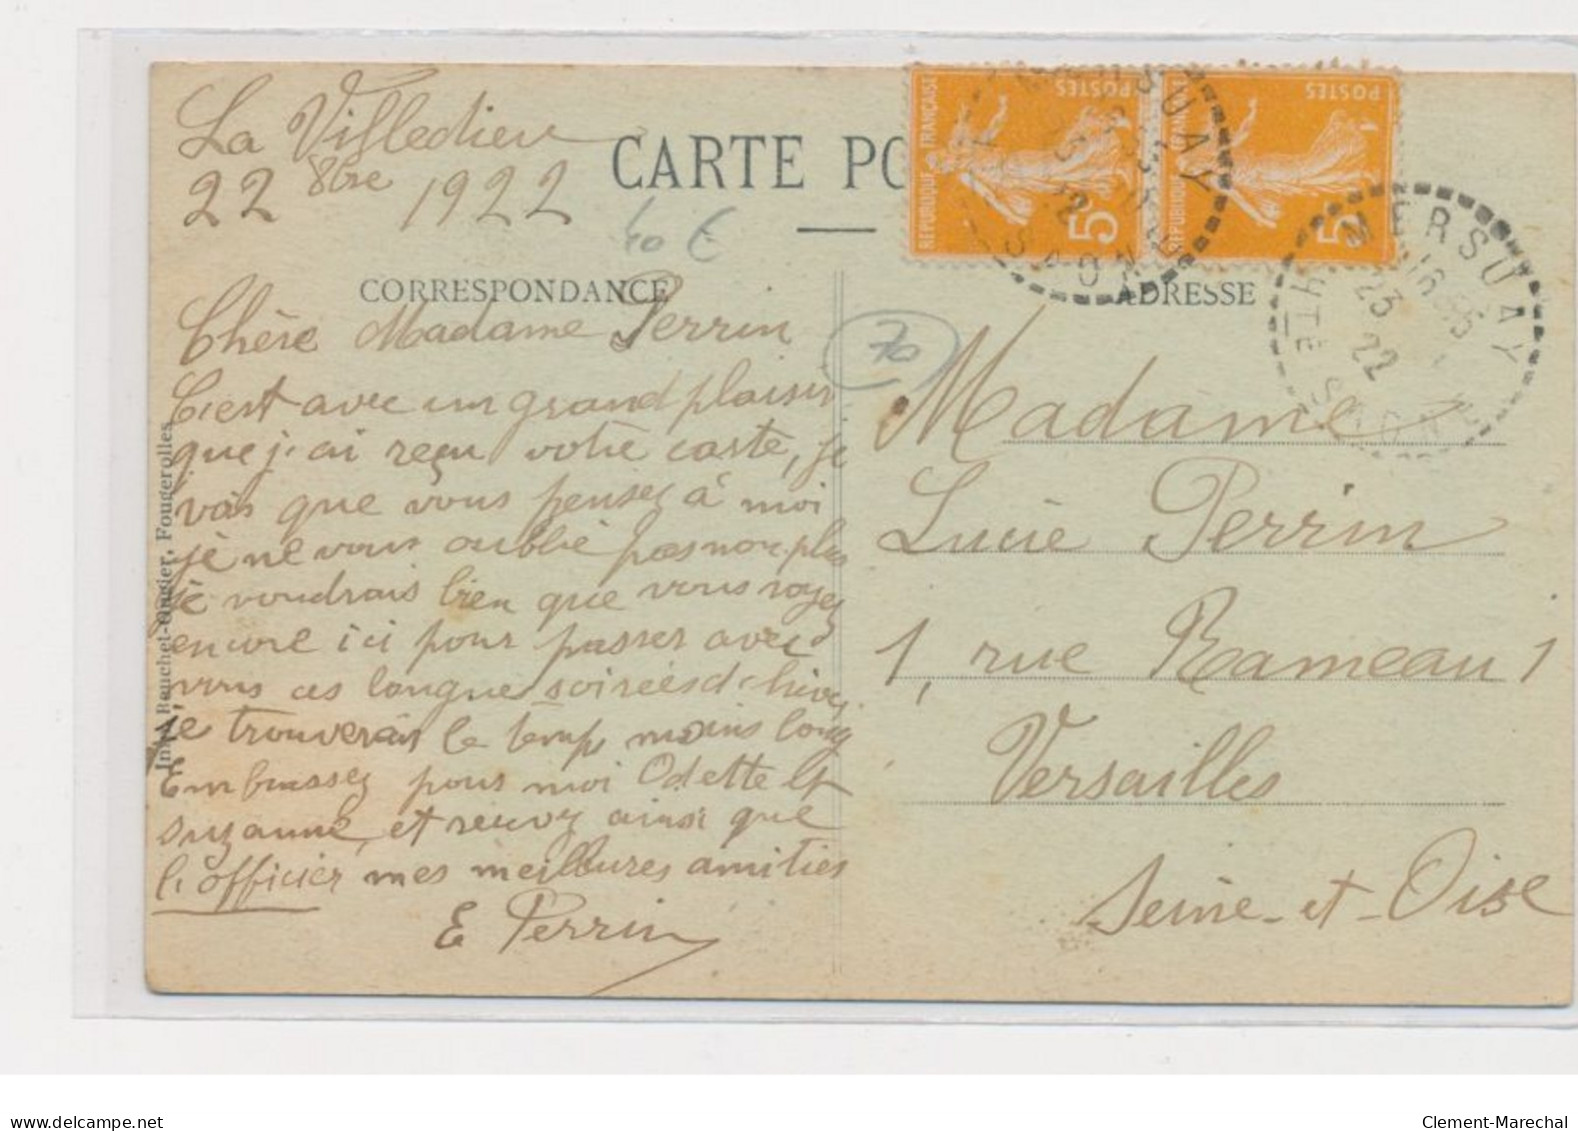 La Villedieu
22 8bre 1922
CARTE PO
40 €
CORRESPONDANCE
ADRESSE
Chère Madame Perrin
C'est avec un grand plaisir
que j'ai reçu votre carte, je
vois que vous pensez à moi
je ne vous oublie pas non plus
je voudrais bien que vous soyez
encore ici pour passer avec
vous ces longue soirées d'hiver,
je trouverais le temps moins long
Embrassez pour moi Odette et
Suzanne, et recevez ainsi que
l'officier mes meilleures amitiés
E Perrin
70
Madame
Lucie Perrin
1, rue Rameau 1
Versailles
Seine-et-Oise
REPUBLIQUE FRANÇAISE
POSTES
5c
POSTES
5c
MERSUAY
16 35
23
22
HTE SAONE
Imp. Bauchet-Ongier, Fougerolles
delcampe.net
Clement-Marechal